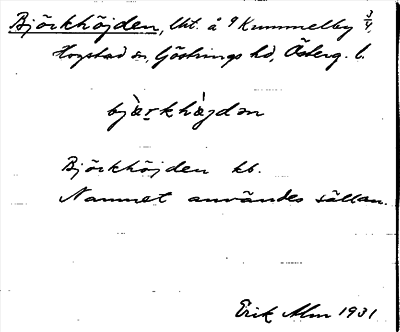 Björkhöjden, lht. å 9 Kummelby 3/4,
Hogstad sn, Göstrings hd, Österg. l.
bjærkhæjdən
Björkhöjden kb.
Namnet användes sällan.
Erik Alm 1931